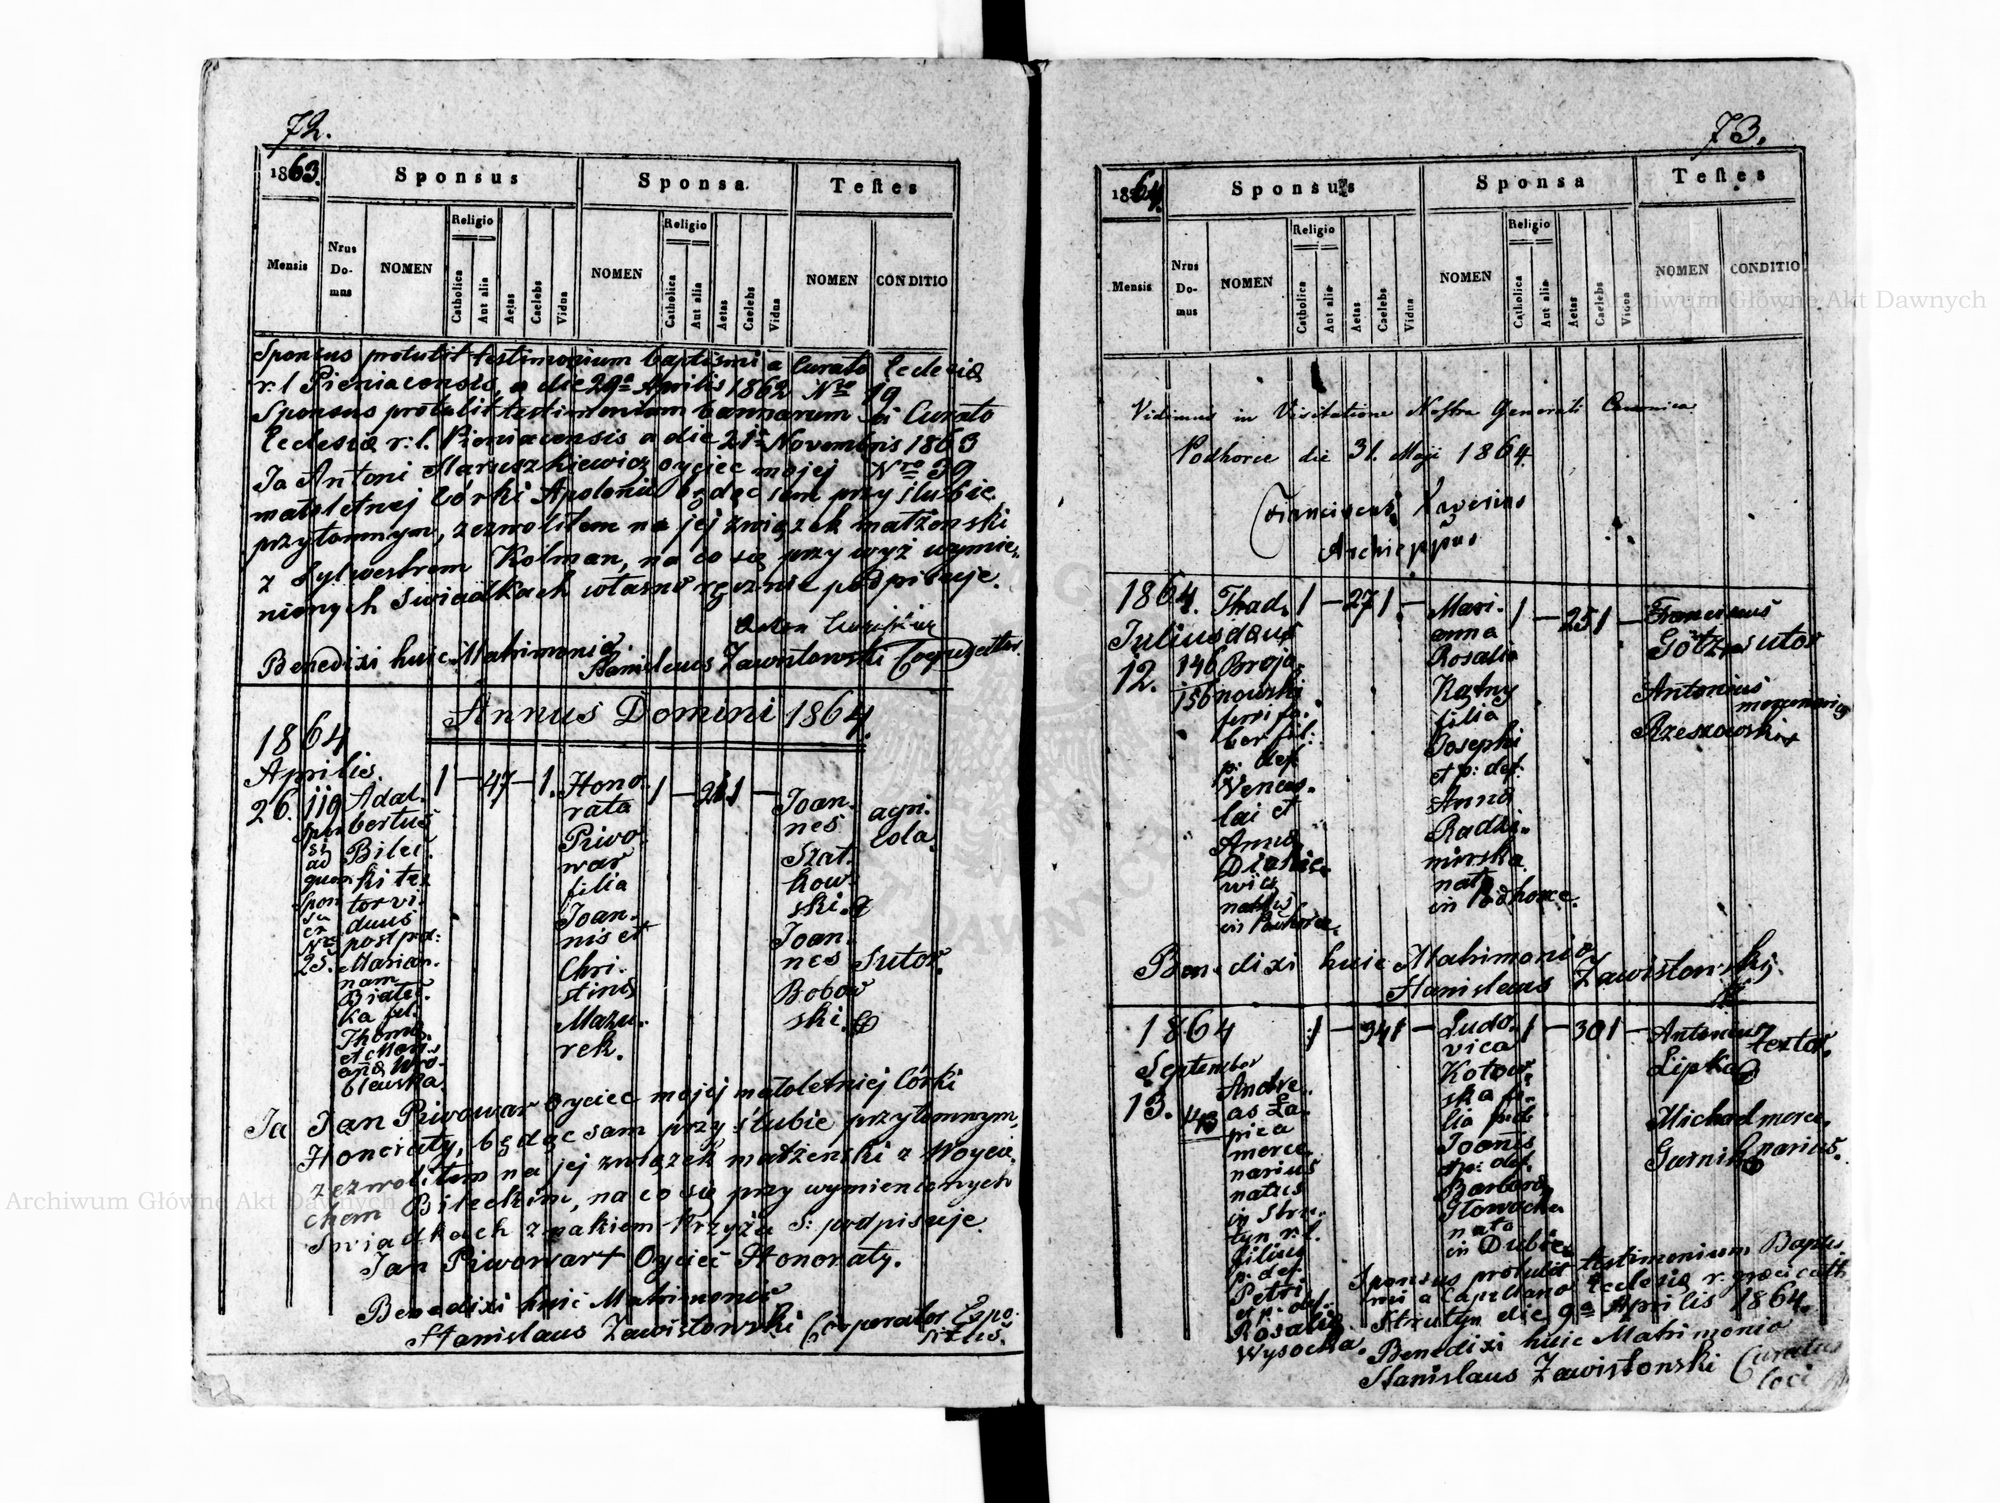 72.
1863.
Sponsus
Sponsa
Testes
Mensis
Nrus Do- mus
NOMEN
Religio
Catholica
Aut alia
Aetas
Caelebs
Vidus
NOMEN
Religio
Catholica
Aut alia
Aetas
Caelebs
Vidua
NOMEN
CONDITIO
Sponsus protulit testimonium baptismi a Curato Ecclesiæ
r. l Pieniacensis, a die 29ª Aprilis 1862 Nro 19
Sponsus protulit testimonium bannorum a Curato
Ecclesiæ r: l. Pieniacensis a die 21ª Novembris 1863
Nro 39
Ja Antoni Maruszkiewicz oyciec mojej
małoletnej Córki Apolonii będąc sam przy ślubie
przytomnym, zezwoliłem na jej związek małżenski
z Sylwestrem Kolman, na co się przy wyż wymie-
nionych świadkach własno ręcznie podpisuje.
Benedixi huic Matrimonio.
Stanislaus Zawistowski Cooperator.
Annus Domini 1864.
1864
Aprilis
26.
119
spon
si
ad
quem
spon
sa
ex
Nro
25.
Adal-
bertus
Bilec-
ki tex
tor vi-
duus
post pd:
Marian-
nam
Bialec-
ka fil.
Thomæ
et Mari-
anæ Wró-
blewska
1 — 47 — 1.
Hono-
rata
Piwo-
war
filia
Joan-
nis et
Chri-
stinæ
Mazu-
rek.
1 — 21 1 —
Joan-
nes
Szat-
kow-
ski.
agri-
cola.
Joan-
nes
Bobow
ski.
Sutor.
Ja Jan Piwowar oyciec mojej małoletniej Córki
Honoraty, będąc sam przy ślubie przytomnym,
zezwoliłem na jej związek małżenski z Woycie-
chem Bileckim, na co się przy wymienionych
świadkach znakiem Krzyża S: podpisuje.
Jan Piwowar + Oyciec Honoraty.
Benedixi huic Matrimonio
Stanislaus Zawistowski Cooperator Expo-
situs.
73.
1864.
Sponsus
Sponsa
Testes
Mensis
Nrus Do- mus
NOMEN
Religio
Catholica
Aut alia
Aetas
Caelebs
Vidus
NOMEN
Religio
Catholica
Aut alia
Aetas
Caelebs
Vidua
NOMEN
CONDITIO
Vidimus in Visitatione Nostra Generali Canonica
Podhorce die 31. Maji 1864.
Franciscus Xaverius
Archieppus
1864.
Julius
12.
146
156
Thad-
daus
Broja-
nowski
ferri fa-
ber fil:
p: def.
Vences-
lai et
Anna
wicz
natus
in Podhorce.
1 — 27 1 —
Mari-
anna
Rosalia
Kątny
filia
Josephi
et p: def:
Anna
Radzi-
mirska
nata
in Podhorce.
1 — 25 1 —
Franciscus
Götz
sutor
Antonius
Rzeszowski
mercenarius
Benedixi huic Matrimonio
Stanislaus Zawistowski.
1864
September
13.
43
Andre-
as Ła-
pica
merce-
narius
natus
in Stru-
tyn r. l.
filius
p: def.
Petri
et p: def:
Rosalia
Wysocka.
1 — 34 1 —
Ludo-
vica
Kotow-
ska fi-
lia p: d:
Joannis
et p: def.
Barbara
Głowacka
nata
in Dubie.
1 — 30 1 —
Antonius
Lipka
textor.
Michael
Garni
merce-
narius.
Sponsus protulit testimonium Baptis-
mi a Capellano Ecclesiæ r. græci cath.
Strutyn die 9ª Aprilis 1864.
Benedixi huic Matrimonio
Stanislaus Zawistowski Curatus
loci
Archiwum Główne Akt Dawnych
Archiwum Główne Akt Dawnych